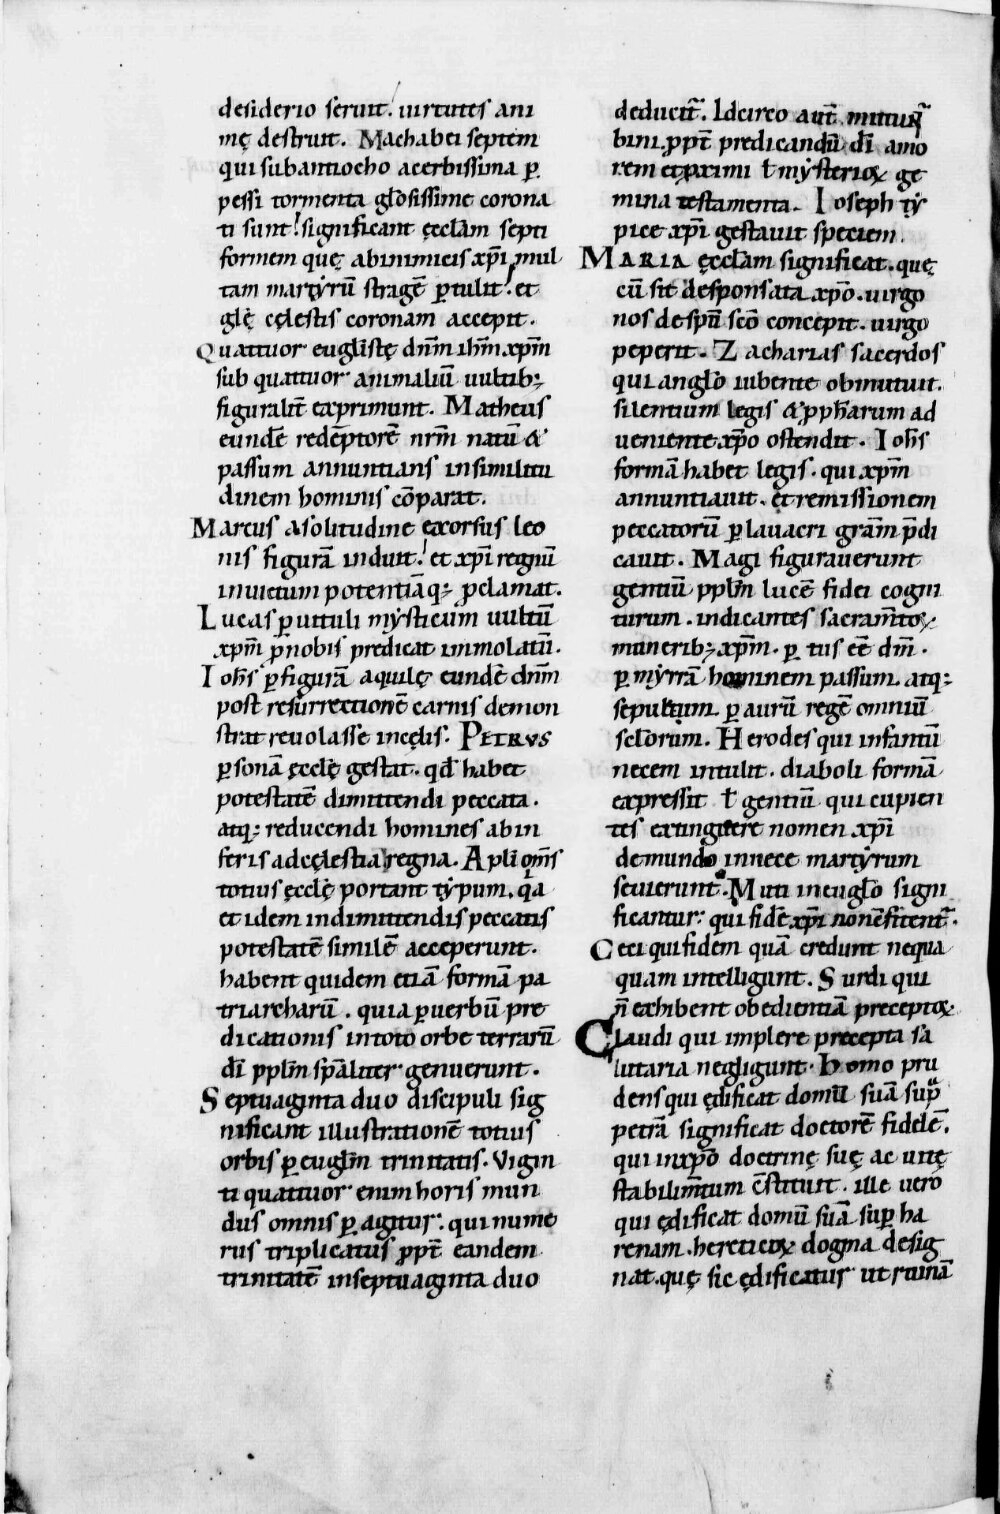 desiderio seruit. uirtutes ani
mę destruit. Machabei septem
qui sub antiocho acerbissima ꝑ
pessi tormenta gl̅osissime corona
ti sunt! significant ęccl̅am septi
formem quę ab inimicis xp̅i mul
tam martẏrū stragē ꝑtulit! et
gl̅ę cęlestis coronam accepit.
Quattuor eugl̅istę dn̅m ih̅m xp̅m
sub quattuor animaliū uultib;
figuralit̅ exprimunt. Matheus
eundē redēptorē nr̅m natū &
passum annuntians in similitu
dinem hominis cōparat.
Marcus a solitudine exorsus leo
nis figurā induit! et xp̅i regnū
inuictum potentiāq; ꝓclamat.
Lucas ꝑ uituli mẏsticum uultū
xp̅m ꝓ nobis predicat immolatū.
Ioh̅s ꝑ figurā aquilę eundē dn̅m
post resurrectionē carnis demon
strat reuolasse in cęlis. PETRVS
ꝑsonā ęccl̅ę gestat. qd̅ habet
potestatē dimittendi peccata.
atq; reducendi homines ab in
feris ad cęlestia regna. Apl̅i om̅s
totius ęccl̅ę portant tẏpum. q̅a
et idem in dimittendis peccatis
potestatē similē acceperunt.
habent quidem etiā formā pa
triarcharū. quia ꝑ uerbū pre
dicationis in toto orbe terrarū
dī ppl̅m sp̅aliter genuerunt.
Septuaginta duo discipuli sig
nificant illustrationē totius
orbis ꝑ eugl̅m trinitatis. Vigin
ti quattuor enim horis mun
dus omnis ꝑagitur. qui nume
rus triplicatus ꝓpt̅ eandem
trinitatē in septuaginta duo
deducit̅. Idcirco aut̅ mittunt̅
bini. ꝓpt̅ predicandū dī amo
rem et ꝓximi ƚ mẏsterioꝝ ge
mina testamenta. Ioseph tẏ
pice xp̅i gestauit speciem.
MARIA ęccl̅am significat. quę
cū sit desponsata xp̅o. uirgo
nos de sp̅u sc̅o concepit. uirgo
peperit. Zacharias sacerdos
qui angl̅o iubente obmutuit.
silentium legis & ꝓph̅arum ad
ueniente xp̅o ostendit. Ioh̅s
formā habet legis. qui xp̅m
annuntiauit. et remissionem
peccatorū ꝑ lauacri gra̅m p̅di
cauit. Magi figurauerunt
gentiū ppl̅m lucē fidei cogni
turum. indicantes sacram̅toꝝ
munerib; xp̅m. ꝑ tus eē dm̅.
ꝑ mẏrrā hominem passum. atq;
sepultum. ꝑ aurū regē omniū
sclorum. Herodes qui infantū
necem intulit. diaboli formā
expressit ƚ gentiū qui cupien
tes extinguere nomen xp̅i
de mundo in nece martẏrum
seuierunt. Muti in eugl̅o signi
ficantur: qui fidē xp̅i non ꝯfitent̅.
Ceci qui fidem quā credunt nequa
quam intelligunt. Surdi qui
n̅ exhibent obedientiā preceptoꝝ.
Claudi qui implere precepta sa
lutaria negligunt. Homo pru
dens qui ędificat domū suā supͣ
petrā significat doctorē fidelē.
qui in xp̅o doctrinę suę ac uitę
stabilim̅tum ꝯstituit. ille uero
qui ędificat domū suā suꝑ ha
renam. hereticoꝝ dogma desig
nat. quę sic ędificatur ut ruinā